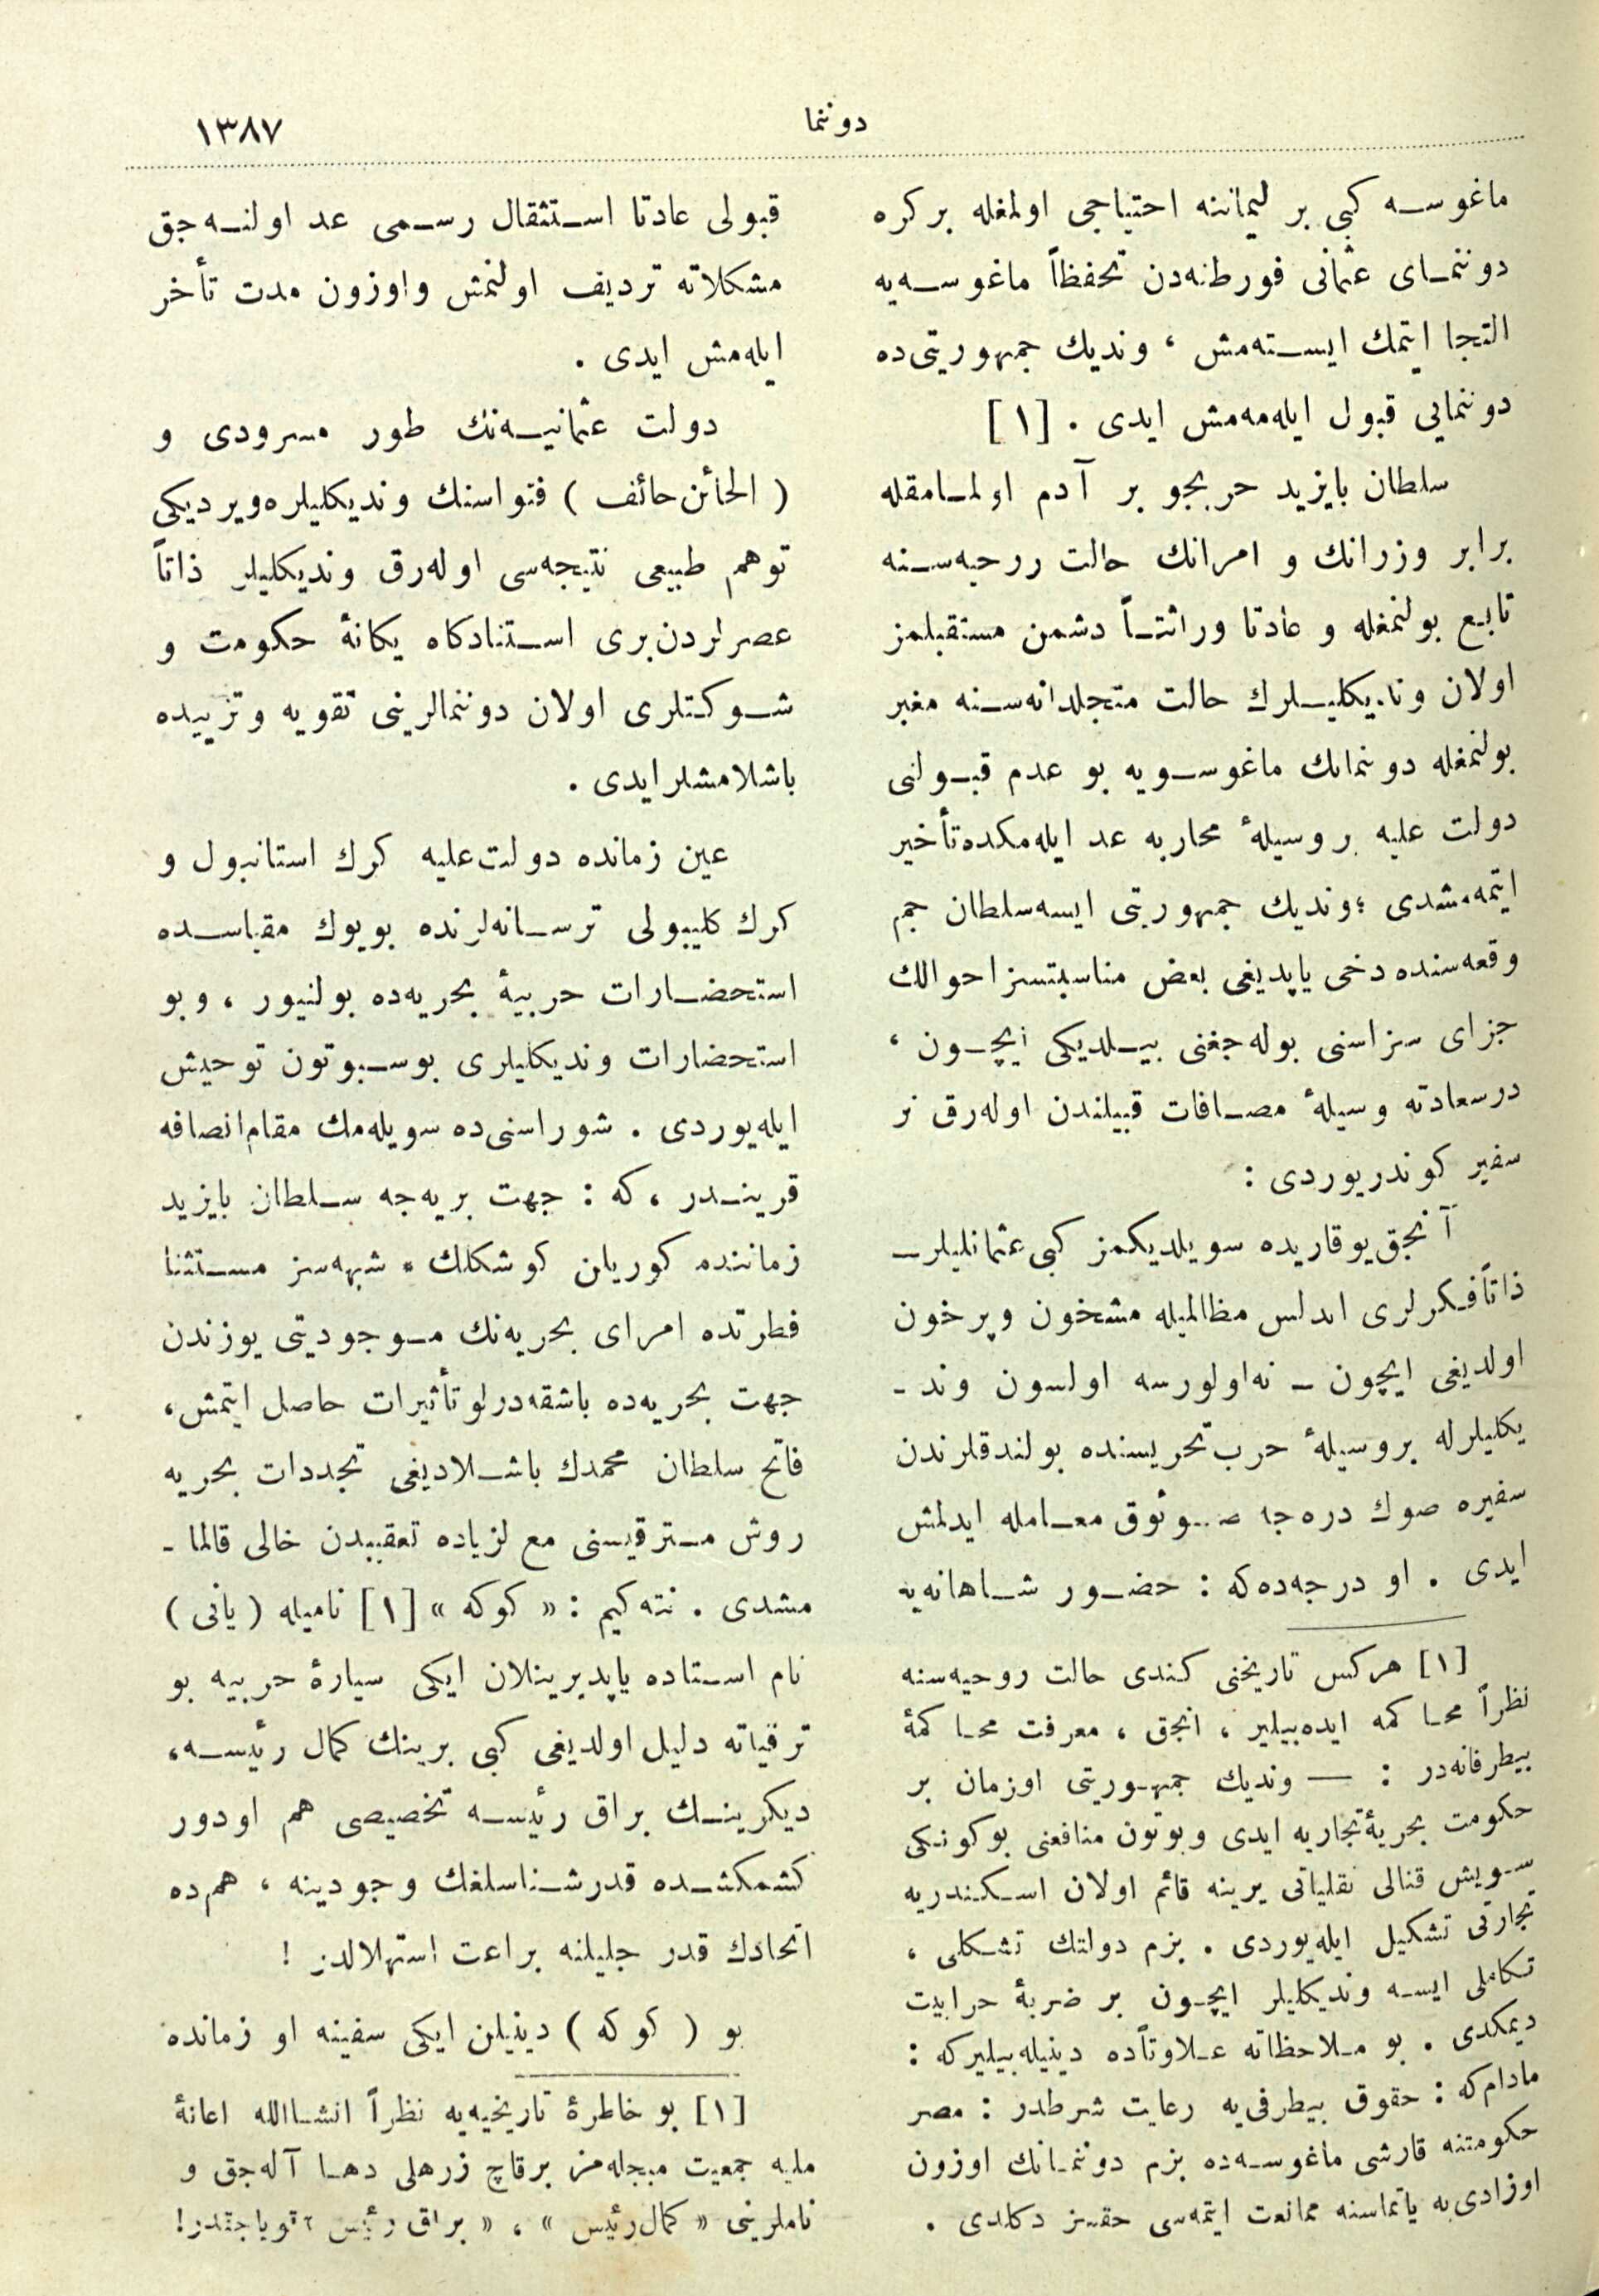 دوننما
١٣٨٧
ماغوسه كبی بر لیماننه احتیاجی اولمغله بركره
دوننمای عثمانی فورطنه‌دن تحفظاً ماغوسه‌یه
التجا ایتمك ایسته‌مش ، وندیك جمهوریتی‌ده
دوننمایی قبول ایله‌مه‌مش ایدی . [١]
سلطان بایزید حربجو بر آدم اولمامقله
برابر وزرانك و امرانك حالت روحیه‌سنه
تابع بولنمغله و عادتا وراثتاً دشمن مستقبلمز
اولان وندیكلیلرك حالت متجلدانه‌سنه مغبر
بولنمغله دوننمانك ماغوسویه بو عدم قبولنی
دولت علیه بروسیلهٔ محاربه عد ایله‌مكده تأخیر
ایتمه‌مشدی ؛ وندیك جمهوریتی ایسه سلطان جم
وقعه‌سنده دخی یاپدیغی بعض مناسبتسز احوالك
جزای سزاسنی بوله‌جغنی بیلدیكی ایچون ،
درسعادته وسیلهٔ مصافات قبیلندن اوله‌رق بر
سفیر كوندریوردی :
آنجق یوقاریده سویلدیكمز كبی عثمانلیلر ـ
ذاتاً فكرلری اندلس مظالمیله مشخون وپرخون
اولدیغی ایچون ـ نه اولورسه اولسون وند ـ
یكلیلرله بروسیلهٔ حرب تحریسنده بولندقلرندن
سفیره صوك درجه صوئوق معامله ایدلمش
ایدی . او درجه‌ده‌كه : حضور شاهانه‌یه
[١] هركس تاریخنی كندی حالت روحیه‌سنه
نظراً محاكمه ایده‌بیلیر ، انجق ، معرفت محاكمهٔ
بیطرفانه‌در : — وندیك جمهوریتی اوزمان بر
حكومت بحریهٔ تجاریه ایدی وبوتون منافعنی بوكونكی
سویش قنالی نقلیاتی یرینه قائم اولان اسكندریه
تجارتی تشكیل ایله‌یوردی . بزم دولتك تشكلی ،
تكاملی ایسه وندیكلیلر ایچون بر ضربهٔ حرابیت
دیمكدی . بو ملاحظاته علاوتاً‌ده دینیله‌بیلیركه :
مادام‌كه : حقوق بیطرفی‌یه رعایت شرطدر : مصر
حكومتنه قارشی ماغوسه‌ده بزم دوننمانك اوزون
اوزادی‌یه یاتماسنه ممانعت ایتمه‌سی حقسز دكلدی .
قبولی عادتا استثقال رسمی عد اولنه‌جق
مشكلاته تردیف اولنمش واوزون مدت تأخر
ایله‌مش ایدی .
دولت عثمانیه‌نك طور مسرودی و
( الخائن خائف ) فتواسنك وندیكلیلره ویردیكی
توهم طبیعی نتیجه‌سی اوله‌رق وندیكلیلر ذاتاً
عصرلردن‌بری استنادكاه یكانهٔ حكومت و
شوكتلری اولان دوننمالرینی تقویه وتزییده
باشلامشلر ایدی .
عین زمانده دولت‌علیه كرك استانبول و
كرك كلیبولی ترسانه‌لرنده بویوك مقیاسده
استحضارات حربیهٔ بحریه‌ده بولنیور ، وبو
استحضارات وندیكلیلری بوسبوتون توحیش
ایله‌یوردی . شوراسنی‌ده سویله‌مك مقام‌انصافه
قریندر ، كه : جهت بریه‌جه سلطان بایزید
زماننده كوریلن كوشكلك ، شبهه‌سز مستثنا
فطرتده امرای بحریه‌نك موجودیتی یوزندن
جهت بحریه‌ده باشقه‌درلو تأثیرات حاصل ایتمش،
فاتح سلطان محمدك باشلادیغی تجددات بحریه
روش مسترقیسنی مع لزیاده تعقیبدن خالی قالما ـ
مشدی . نته‌كیم : « كوكه » [١] نامیله ( یانی )
نام استاده یاپدیریلان ایكی سیارهٔ حربیه بو
ترقیاته دلیل اولدیغی كبی برینك كمال رئیسه،
دیكرینك براق رئیسه تخصیصی هم اودور
كشمكشده قدرشناسلغك وجودینه ، هم‌ده
اتحادك قدر جلیلنه براعت استهلالدر !
بو ( كوكه ) دینیلن ایكی سفینه او زمانده
[١] بو خاطرهٔ تاریخیه‌یه نظراً انشاالله اعانهٔ
ملیه جمعیت مبجله‌مز برقاچ زرهلی دها آله‌جق و
ناملرینی « كمال رئیس » ، « براق رئیس » قویاجقدر!